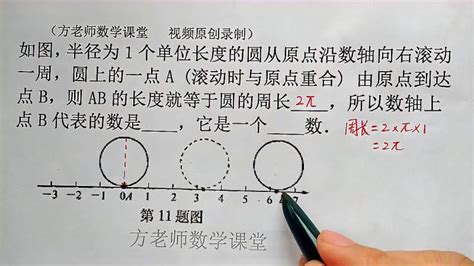 （方老师数学课堂　视频原创录制）
如图，半径为 1 个单位长度的圆从原点沿数轴向右滚动
一周，圆上的一点 A（滚动时与原点重合）由原点到达
点 B，则 AB 的长度就等于圆的周长 2π ，所以数轴上
点 B 代表的数是____，它是一个____数．
周长=2×π×1
=2π
-3 -2 -1 0 A 1 2 3 4 5 6 7
第 11 题图
方老师数学课堂